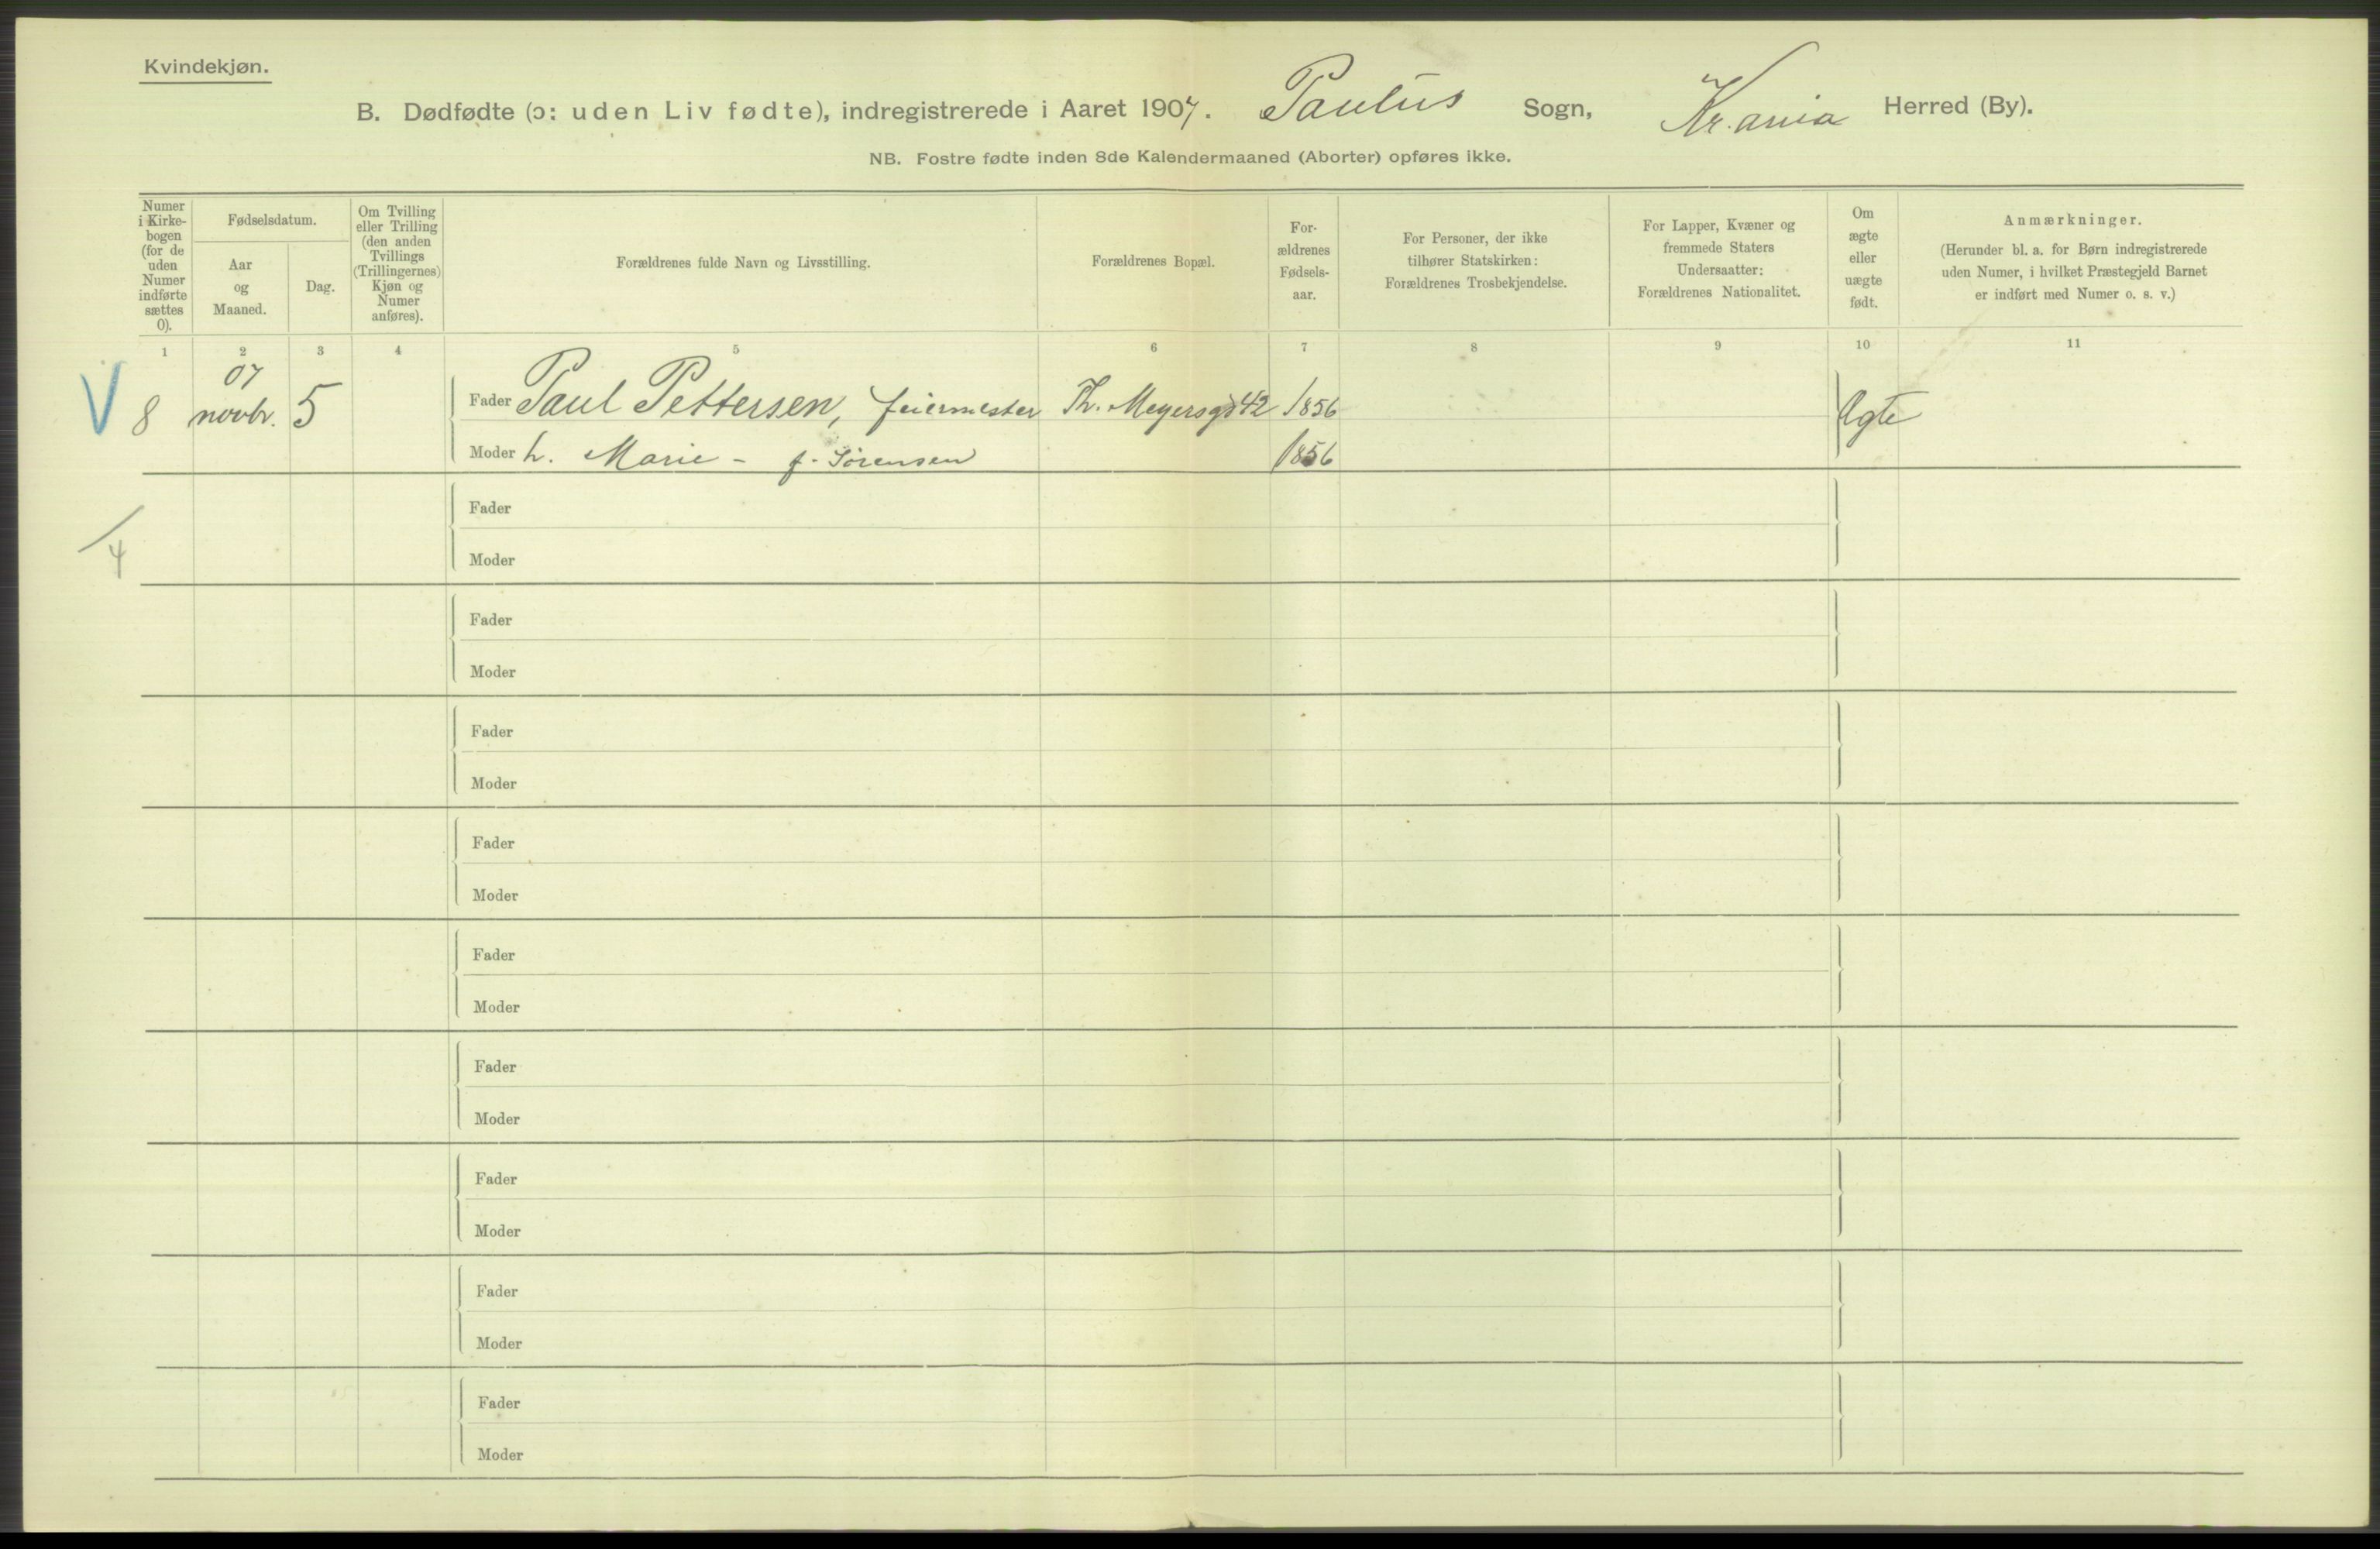 Kvindekjøn.
B. Dødfødte (ɔ: uden Liv fødte), indregistrerede i Aaret 1907. Paulus Sogn, Kr.ania Herred (By).
NB. Fostre fødte inden 8de Kalendermaaned (Aborter) opføres ikke.
Numer
i Kirke-
bogen
(for de
uden
Numer
indførte
sættes
0).
Fødselsdatum.
Aar
og
Maaned.
Dag.
Om Tvilling
eller Trilling
(den anden
Tvillings
(Trillingernes)
Kjøn og
Numer
anføres).
Forældrenes fulde Navn og Livsstilling.
Forældrenes Bopæl.
For-
ældrenes
Fødsels-
aar.
For Personer, der ikke
tilhører Statskirken:
Forældrenes Trosbekjendelse.
For Lapper, Kvæner og
fremmede Staters
Undersaatter:
Forældrenes Nationalitet.
Om
ægte
eller
uægte
født.
Anmærkninger.
(Herunder bl. a. for Børn indregistrerede
uden Numer, i hvilket Præstegjeld Barnet
er indført med Numer o. s. v.)
1 2 3 4 5 6 7 8 9 10 11
07
V 8 novbr. 5 Fader Paul Pettersen, feiermester Th. Meyersgd 42 1856 Ægte
Moder h. Marie - f. Sørensen 1856
Fader
4
Moder
Fader
Moder
Fader
Moder
Fader
Moder
Fader
Moder
Fader
Moder
Fader
Moder
Fader
Moder
Fader
Moder